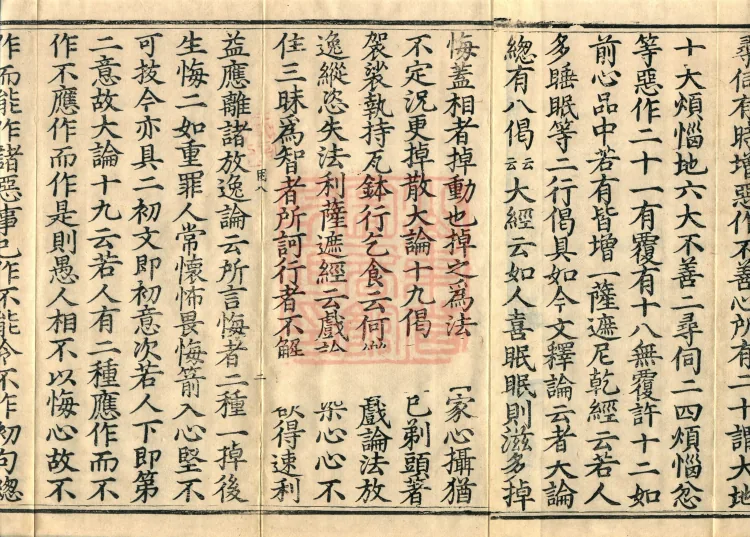 尋伺有時增惡作不善心所有二十謂大地
十大煩惱地六大不善二尋伺二四煩惱忿
等惡作二十一有覆有十八無覆許十二如
前心品中若有皆增一薩遮尼乾經云若人
多睡眠等二行偈具如今文釋論云者大論
總有八偈云云大經云如人喜眠眠則滋多掉
悔蓋相者掉動也掉之為法 家心攝猶
不定況更掉散大論十九偈 已剃頭著
袈裟執持瓦鉢行乞食云何 戲論法放
逸縱恣失法利薩遮經云戲論 心心不
住三昧為智者所訶行者不解 以得速利
用八 二
益應離諸放逸論云所言悔者二種一掉後
生悔二如重罪人常懷怖畏悔箭入心堅不
可拔今亦具二初文即初意次若人下即第
二意故大論十九云若人有二種應作而不
作不應作而作是則愚人相不以悔心故不
作而能作諸惡事已作不能令不作初句總